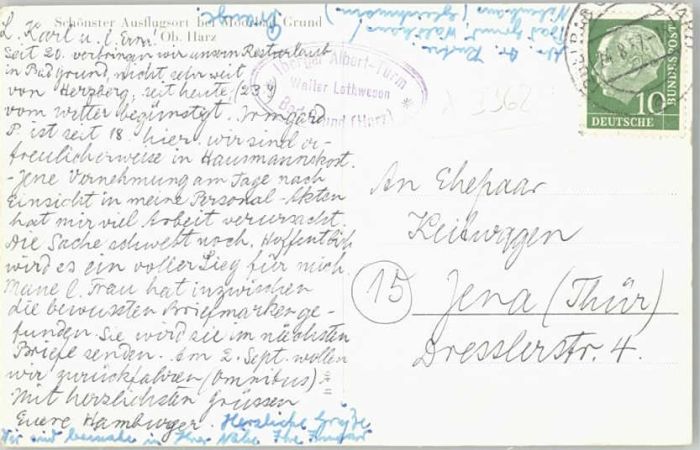 Schönster Ausflugsort bei
Grund
Ob. Harz
L. Karl u. l. Erna!
Seit 20. verbringen wir unsern Resturlaub
in Bad grund, nicht sehr weit
von Herzberg, seit heute (23.)
vom Wetter begünstigt. Irmgard
P. ist seit 18. hier. Wir sind er-
freulicherweise in Hausmannskost.
- Jene Vernehmung am Tage nach
Einsicht in meine Personal-Akten
hat mir viel Arbeit verursacht.
Die Sache schwebt noch. Hoffentlich
wird es ein voller Sieg für mich.
Meine l. Frau hat inzwischen
die bewussten Briefmarken ge-
funden. Sie wird sie im nächsten
Briefe senden. Am 2. Sept. wollen
wir zurückfahren (Omnibus).
Mit herzlichsten Grüssen
Euere Hamburger. Herzliche Grüße
Wir sind beinahe in Ihrer Nähe Ihre Irmgard
Iberger Albert-Turm
Walter Lothwesen
Bad Grund (Harz)
DEUTSCHE
BUNDESPOST
10
An Ehepaar
Keitwaggen
15 Jena (Thür)
Dresslerstr. 4.